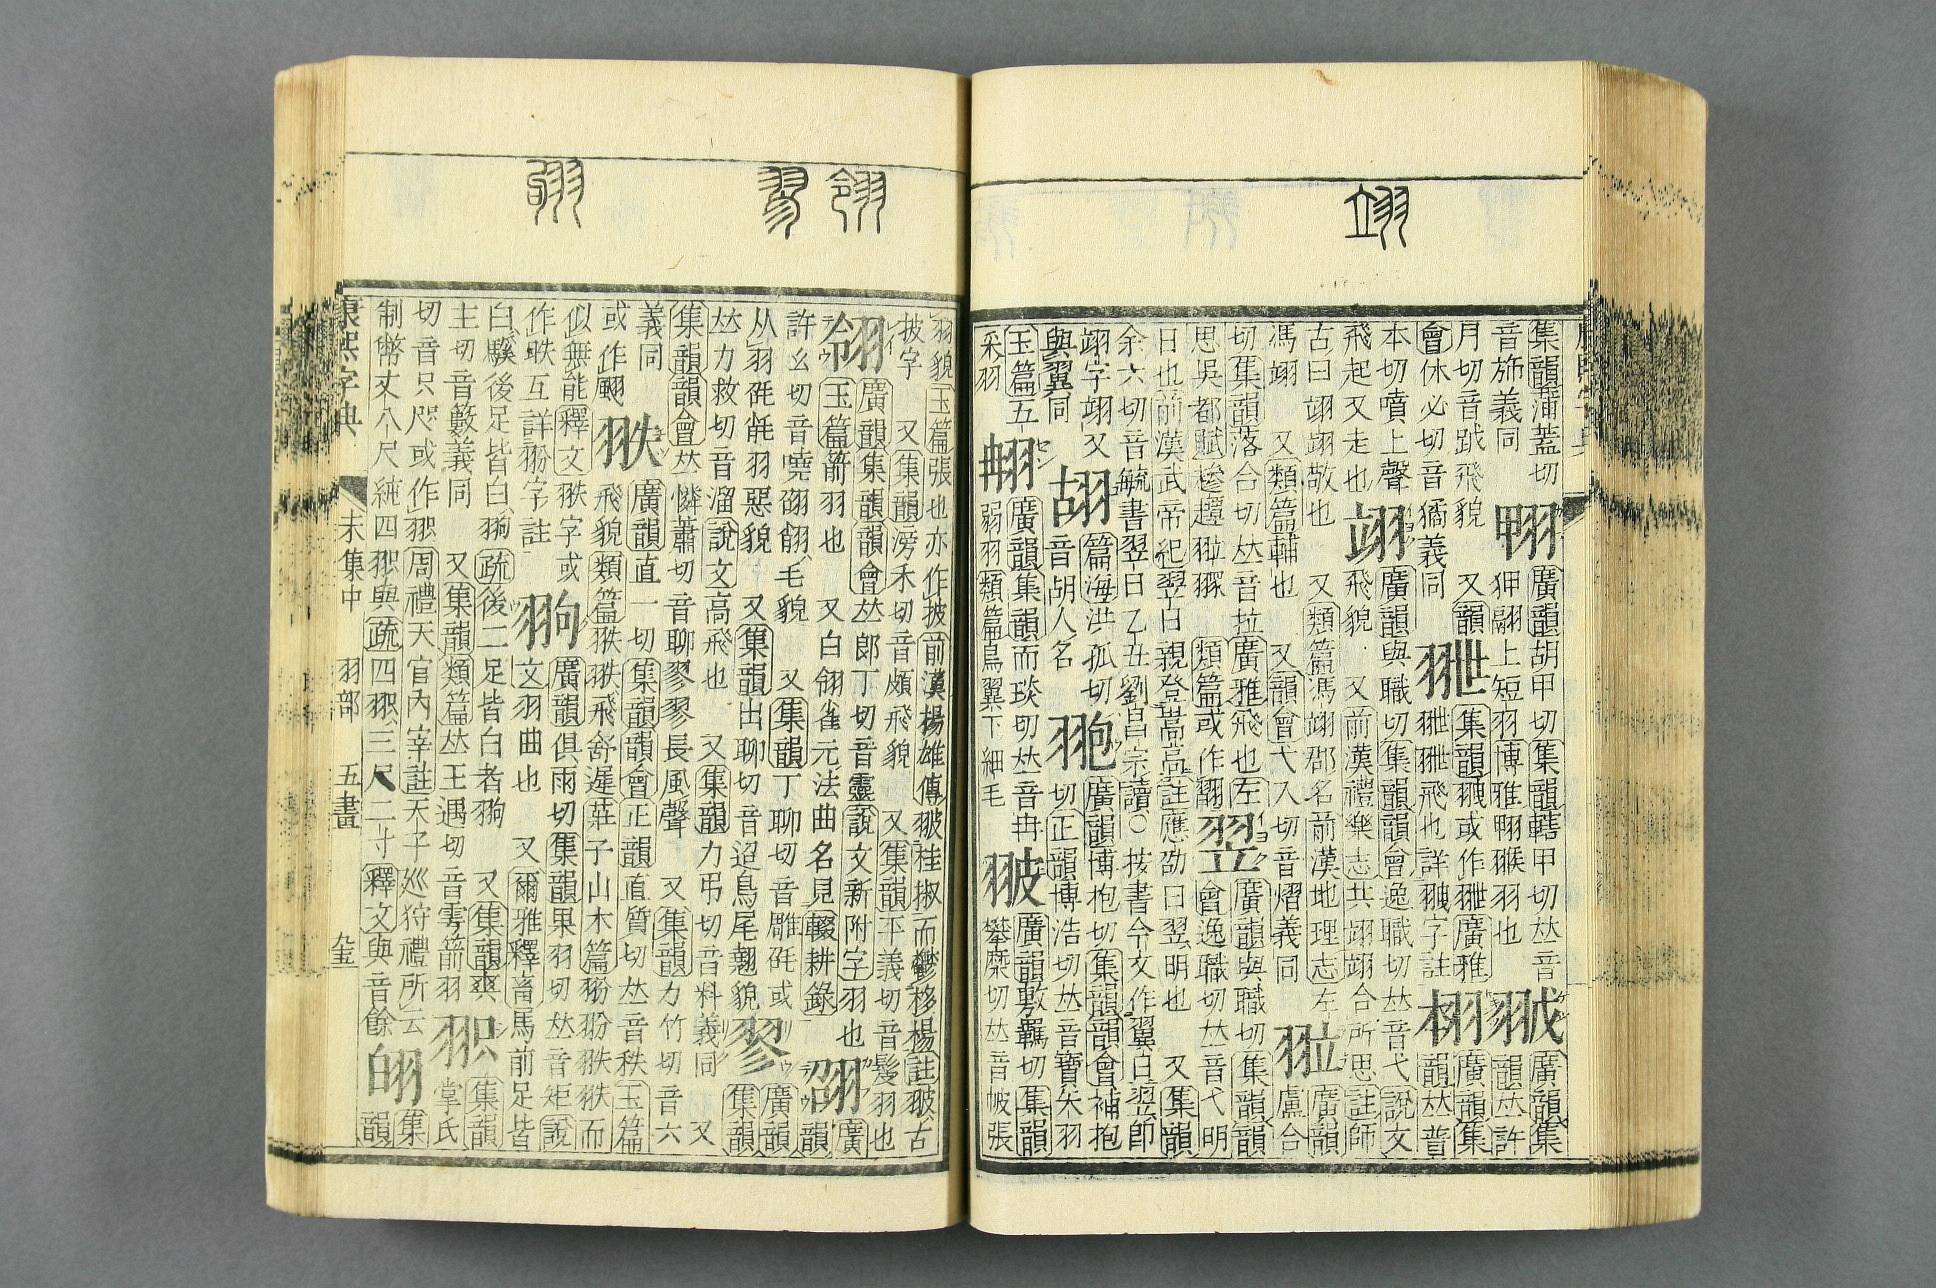 翊
集韻蒲蓋切
音斾義同
翈
廣韻胡甲切集韻轄甲切𠀤音
狎翮上短羽博雅翈翭羽也
廣韻集
韻𠀤許
月切音䟠飛貌 又韻
會休必切音獝義同
廣雅
飛也詳
字註
翉
廣韻集
韻𠀤普
本切噴上聲
飛起又走也
翊
廣韻與職切集韻韻會逸職切𠀤音弋說文
飛貌 又前漢禮樂志共翊翊合所思註師
古曰翊翊敬也 又類篇馮翊郡名前漢地理志左
馮翊 又類篇輔也 又韻會弋入切音熠義同
翋
廣韻
盧合
切集韻落合切𠀤音拉廣雅飛也左
思吳都賦
類篇或作
翌
廣韻與職切集韻
會逸職切𠀤音弋明
日也前漢武帝紀翌日親登嵩高註應劭曰翌明也 又集韻
余六切音毓書翌日乙丑劉昌宗讀○按書今文作翼日翌卽
翊字翊又
與翼同
篇海洪孤切
音胡人名
廣韻博抱切集韻韻會補抱
切正韻博浩切𠀤音寶矢羽
玉篇五
采羽
䎃
廣韻集韻而琰切𠀤音冉
弱羽類篇鳥翼下細毛
翍
廣韻敷羈切集韻
攀糜切𠀤音帔張
翎
翏
翑
羽貌玉篇張也亦作披前漢楊雄傳翍桂椒而鬱栘楊註翍古
披字 又集韻滂禾切音頗飛貌 又集韻平義切音髲羽也
翎
廣韻集韻韻會𠀤郎丁切音靈說文新附字羽也
玉篇箭羽也 又白翎雀元法曲名見輟耕錄
䎄
廣
韻
許幺切音嘵
毛貌 又集韻丁聊切音雕
或
从羽
羽惡貌 又集韻出聊切音迢鳥尾翹貌
翏
廣韻
集韻
𠀤力救切音溜說文高飛也 又集韻力弔切音料義同 又
集韻韻會𠀤憐蕭切音聊翏翏長風聲 又集韻力竹切音六
義同
或作䬅
翐
廣韻直一切集韻韻會正韻直質切𠀤音秩玉篇
飛貌類篇翐翐飛舒遲莊子山木篇翂翂翐翐而
似無能釋文翐字或
作䀣互詳翂字註
翑
廣韻俱雨切集韻果羽切𠀤音矩說
文羽曲也 又爾雅釋畜馬前足皆
白騱後足皆白翑疏後二足皆白者翑 又集韻
主切音藪義同 又集韻類篇𠀤王遇切音雩箭羽
翨
集韻
掌氏
切音只咫或作
周禮天官內宰註天子巡狩禮所云
制幣丈八尺純四
與疏四
三尺二寸釋文與音餘
集
韻
康熙字典 未集中 羽部 五畫